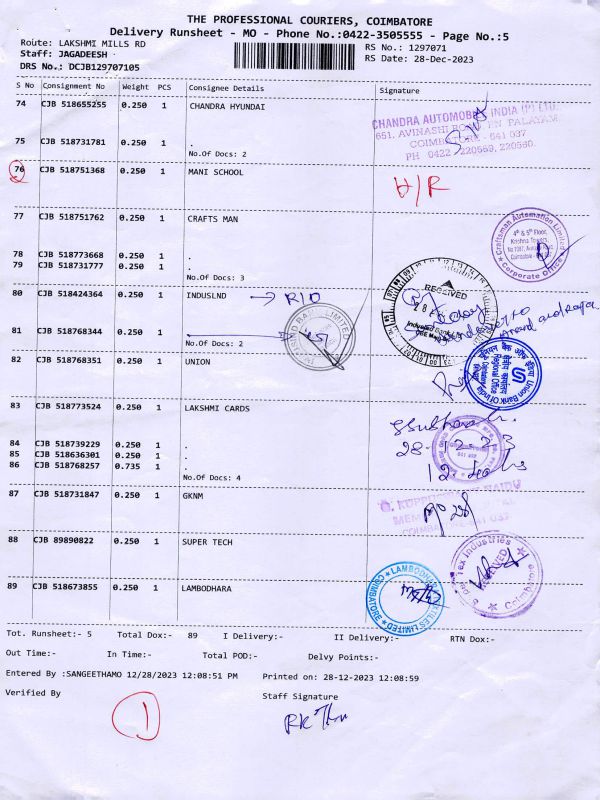 THE PROFESSIONAL COURIERS, COIMBATORE
Delivery Runsheet - MO - Phone No.:0422-3505555 - Page No.:5
Route: LAKSHMI MILLS RD RS No.: 1297071
Staff: JAGADEESH RS Date: 28-Dec-2023
DRS No.: DCJB129707105
S No Consignment No Weight PCS Consignee Details Signature
74 CJB 518655255 0.250 1 CHANDRA HYUNDAI
CHANDRA AUTOMOBILE INDIA (P) LTD.
651, AVINASHI ROAD
COIMBATORE - 641 037
PH 0422 - 220569, 220560.
75 CJB 518731781 0.250 1 .
No.Of Docs: 2
76 CJB 518751368 0.250 1 MANI SCHOOL H/R
77 CJB 518751762 0.250 1 CRAFTS MAN
Craftsman Automation Limited
4th & 5th Floor,
Krishna Towers,
Corporate Office
78 CJB 518773668 0.250 1 .
79 CJB 518731777 0.250 1 .
No.Of Docs: 3
80 CJB 518424364 0.250 1 INDUSLND → R/O
RECEIVED
81 CJB 518768344 0.250 1
No.Of Docs: 2
82 CJB 518768351 0.250 1 UNION
Union Bank Of India
Regional Office
83 CJB 518773524 0.250 1 LAKSHMI CARDS
28-12-23
84 CJB 518739229 0.250 1 .
85 CJB 518636301 0.250 1 .
86 CJB 518768257 0.735 1 .
No.Of Docs: 4
87 CJB 518731847 0.250 1 GKNM
G. KUPPUSWAMY NAIDU
88 CJB 89890822 0.250 1 SUPER TECH
89 CJB 518673855 0.250 1 LAMBODHARA
COIMBATORE
Tot. Runsheet:- 5 Total Dox:- 89 I Delivery:- II Delivery:- RTN Dox:-
Out Time:- In Time:- Total POD:- Delvy Points:-
Entered By :SANGEETHAMO 12/28/2023 12:08:51 PM Printed on: 28-12-2023 12:08:59
Verified By Staff Signature
1